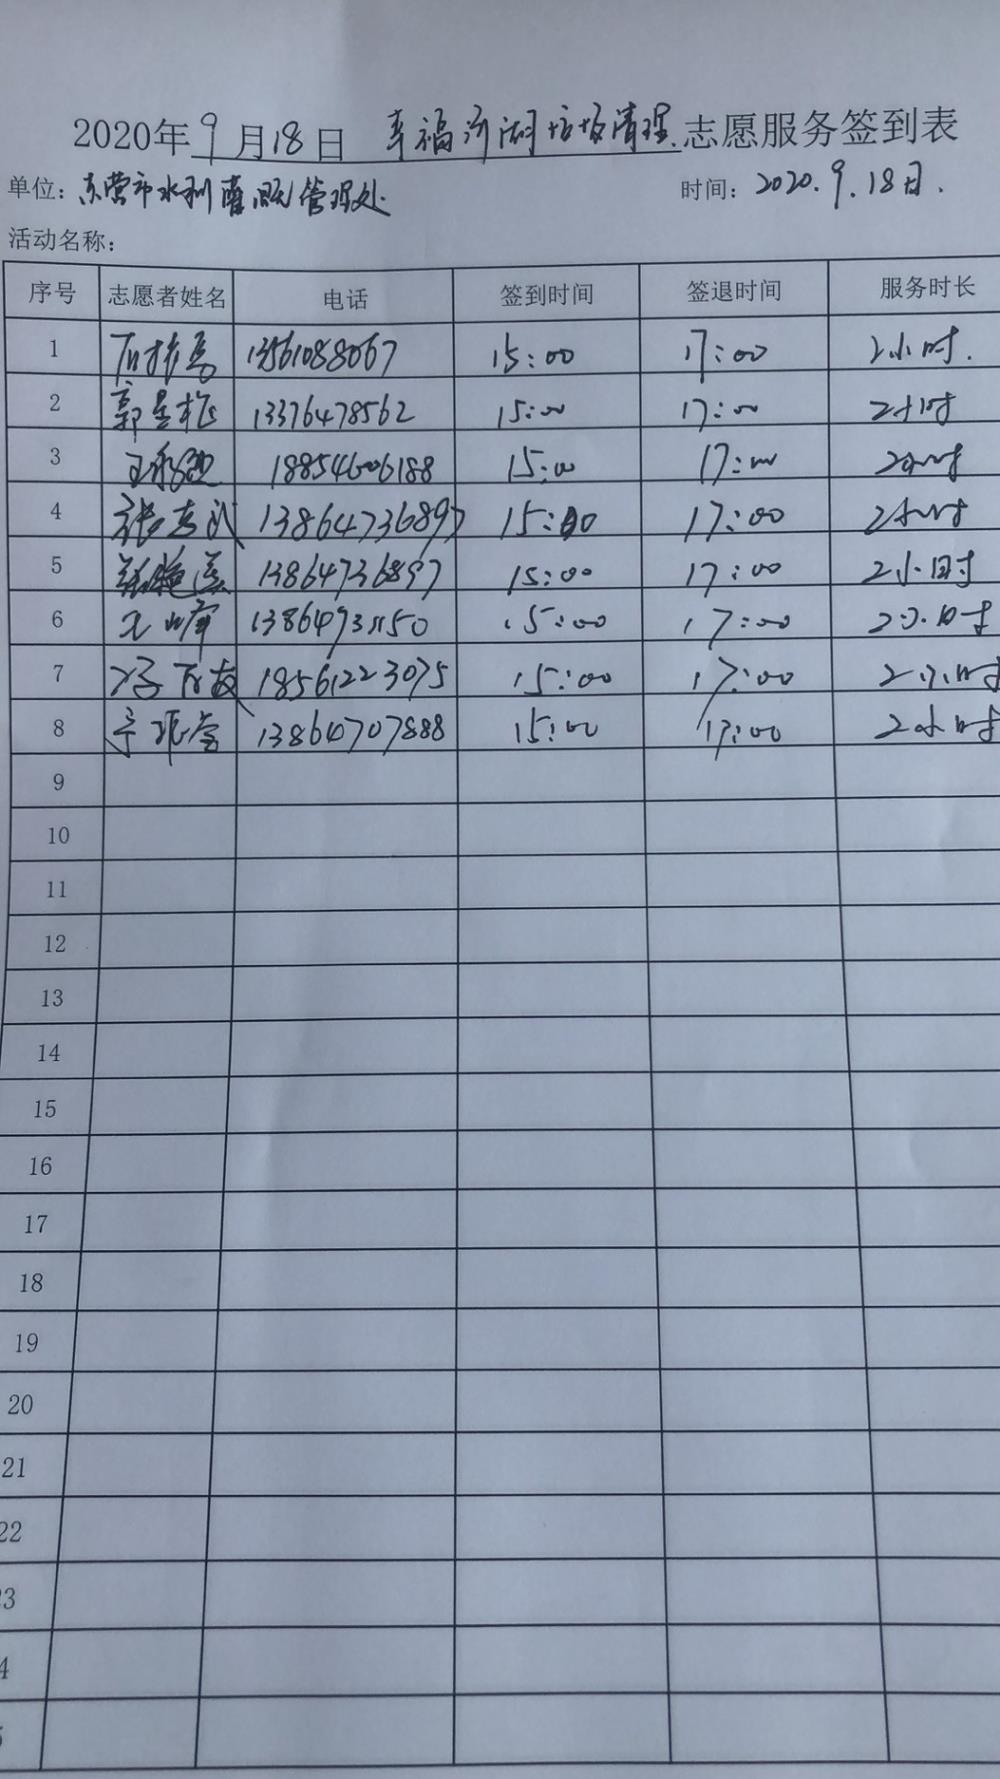 2020年9月18日 幸福河湖垃圾清理志愿服务签到表
单位：东营市水利灌区管理处 时间：2020.9.18日.
活动名称：
序号 志愿者姓名 电话 签到时间 签退时间 服务时长
1 13561088067 15:00 17:00 2小时.
2 13376478562 15:00 17:00 2小时
3 18854606188 15:00 17:00 2小时
4 张志武 13864736897 15:00 17:00 2小时
5 13864736897 15:00 17:00 2小时
6 王峰 15:00 17:00 2小时
7 18561223075 15:00 17:00 2小时
8 13864707888 15:00 17:00 2小时
9
10
11
12
13
14
15
16
17
18
19
20
21
22
3
4